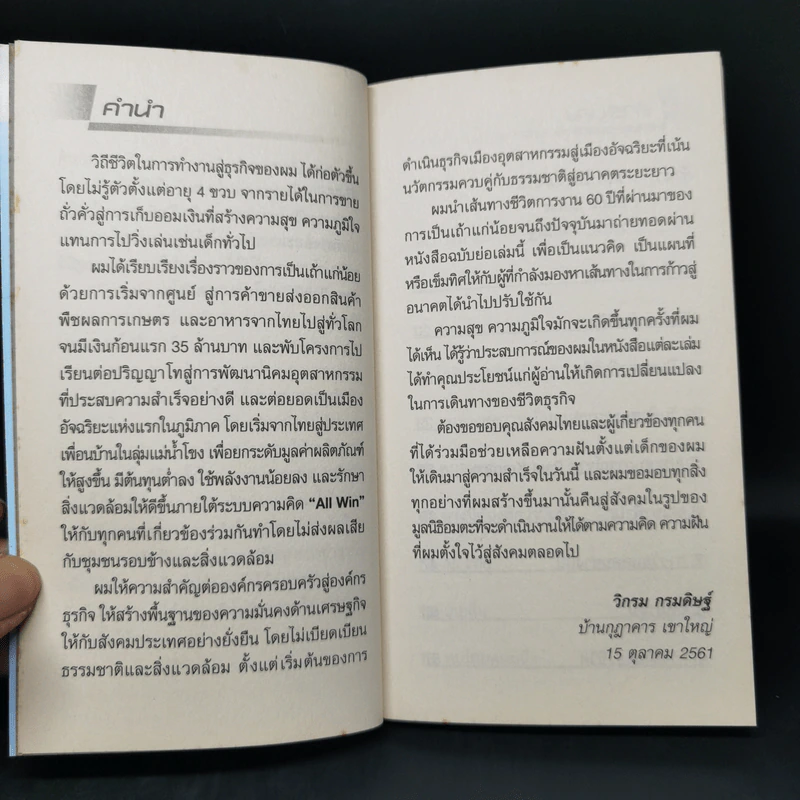 คำนำ
วิถีชีวิตในการทำงานสู่ธุรกิจของผม ได้ก่อตัวขึ้น
โดยไม่รู้ตัวตั้งแต่อายุ 4 ขวบ จากรายได้ในการขาย
ถั่วคั่วสู่การเก็บออมเงินที่สร้างความสุข ความภูมิใจ
แทนการไปวิ่งเล่นเช่นเด็กทั่วไป
ผมได้เรียบเรียงเรื่องราวของการเป็นเถ้าแก่น้อย
ด้วยการเริ่มจากศูนย์ สู่การค้าขายส่งออกสินค้า
พืชผลการเกษตร และอาหารจากไทยไปสู่ทั่วโลก
จนมีเงินก้อนแรก 35 ล้านบาท และพับโครงการไป
เรียนต่อปริญญาโทสู่การพัฒนานิคมอุตสาหกรรม
ที่ประสบความสำเร็จอย่างดี และต่อยอดเป็นเมือง
อัจฉริยะแห่งแรกในภูมิภาค โดยเริ่มจากไทยสู่ประเทศ
เพื่อนบ้านในลุ่มแม่น้ำโขง เพื่อยกระดับมูลค่าผลิตภัณฑ์
ให้สูงขึ้น มีต้นทุนต่ำลง ใช้พลังงานน้อยลง และรักษา
สิ่งแวดล้อมให้ดีขึ้นภายใต้ระบบความคิด “All Win”
ให้กับทุกคนที่เกี่ยวข้องร่วมกันทำโดยไม่ส่งผลเสีย
กับชุมชนรอบข้างและสิ่งแวดล้อม
ผมให้ความสำคัญต่อองค์กรครอบครัวสู่องค์กร
ธุรกิจ ให้สร้างพื้นฐานของความมั่นคงด้านเศรษฐกิจ
ให้กับสังคมประเทศอย่างยั่งยืน โดยไม่เบียดเบียน
ธรรมชาติและสิ่งแวดล้อม ตั้งแต่เริ่มต้นของการ
ดำเนินธุรกิจเมืองอุตสาหกรรมสู่เมืองอัจฉริยะที่เน้น
นวัตกรรมควบคู่กับธรรมชาติสู่อนาคตระยะยาว
ผมนำเส้นทางชีวิตการงาน 60 ปีที่ผ่านมาของ
การเป็นเถ้าแก่น้อยจนถึงปัจจุบันมาถ่ายทอดผ่าน
หนังสือฉบับย่อเล่มนี้ เพื่อเป็นแนวคิด เป็นแผนที่
หรือเข็มทิศให้กับผู้ที่กำลังมองหาเส้นทางในการก้าวสู่
อนาคตได้นำไปปรับใช้กัน
ความสุข ความภูมิใจมักจะเกิดขึ้นทุกครั้งที่ผม
ได้เห็น ได้รู้ว่าประสบการณ์ของผมในหนังสือแต่ละเล่ม
ได้ทำคุณประโยชน์แก่ผู้อ่านให้เกิดการเปลี่ยนแปลง
ในการเดินทางของชีวิตธุรกิจ
ต้องขอขอบคุณสังคมไทยและผู้เกี่ยวข้องทุกคน
ที่ได้ร่วมมือช่วยเหลือความฝันตั้งแต่เด็กของผม
ให้เดินมาสู่ความสำเร็จในวันนี้ และผมขอมอบทุกสิ่ง
ทุกอย่างที่ผมสร้างขึ้นมานั้นคืนสู่สังคมในรูปของ
มูลนิธิอมตะที่จะดำเนินงานให้ได้ตามความคิด ความฝัน
ที่ผมตั้งใจไว้สู่สังคมตลอดไป
วิกรม กรมดิษฐ์
บ้านกุฎาคาร เขาใหญ่
15 ตุลาคม 2561